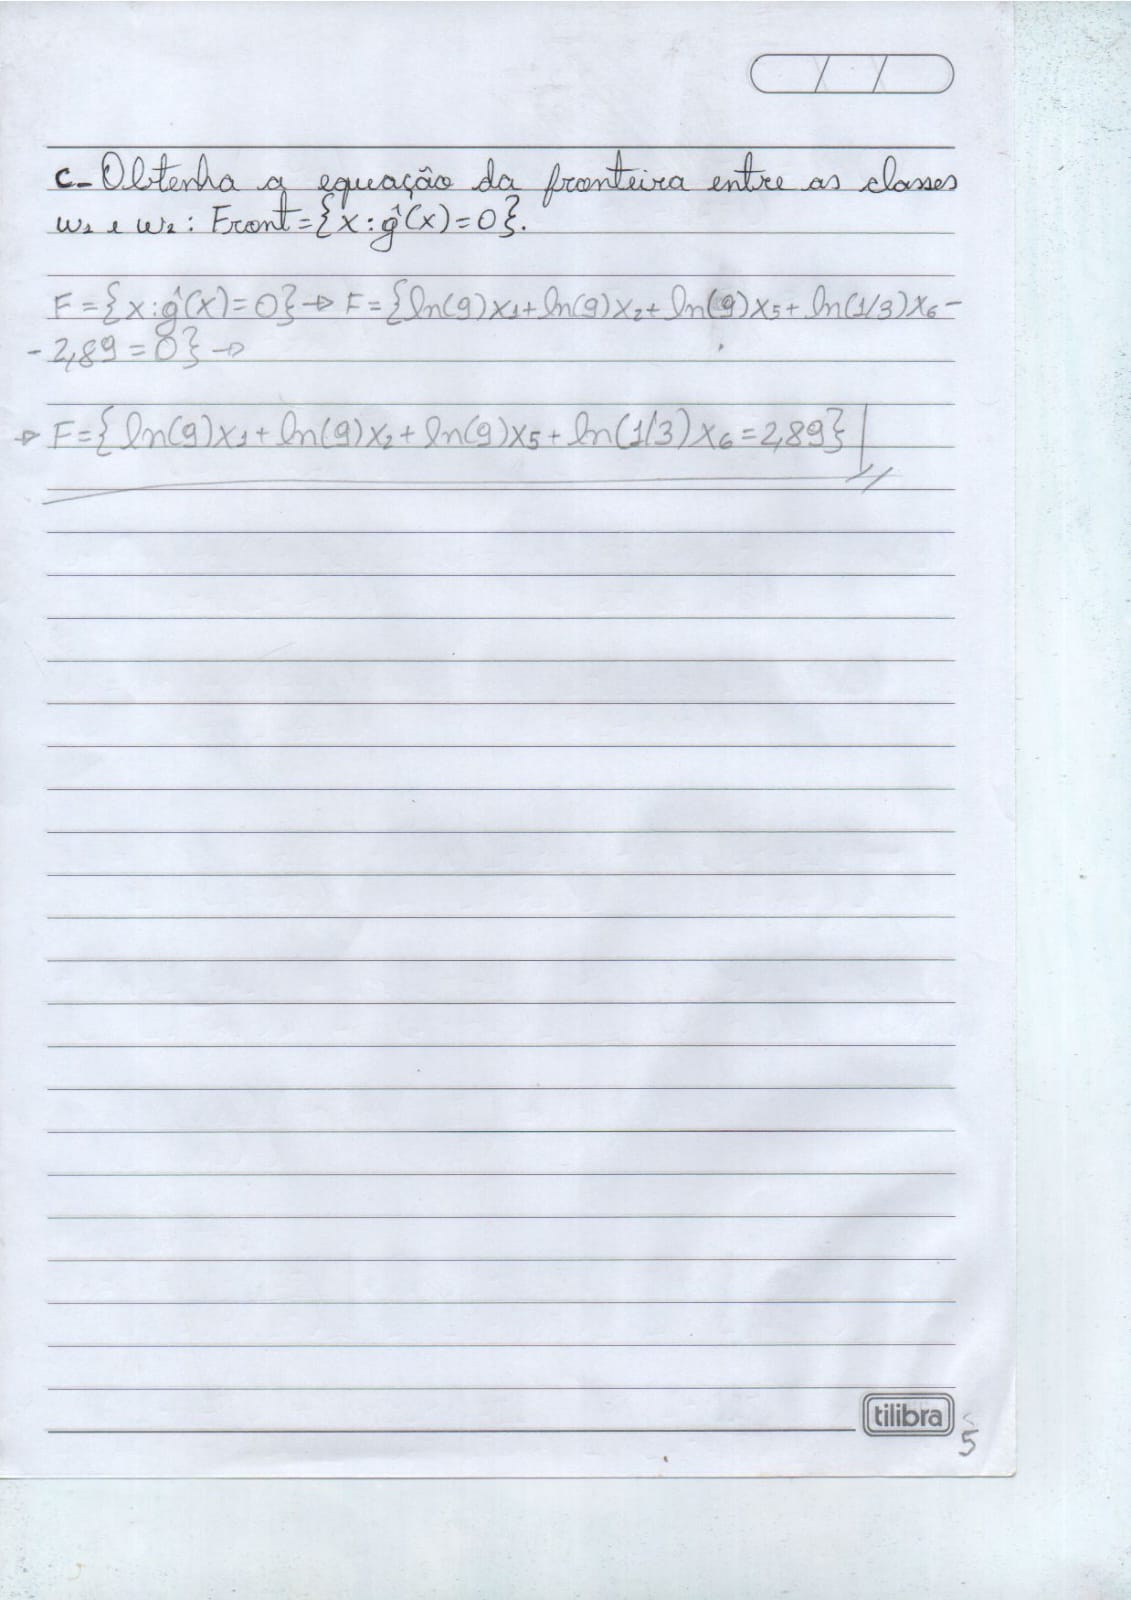 c- Obtenha a equação da fronteira entre as classes
w₁ e w₂ : Front={x:ĝ(x)=0}.
F={x:ĝ(x)=0}→ F={ln(9)x₁+ln(9)x₂+ln(9)x₅+ln(1/3)x₆-
-2,89=0}→
→ F={ln(9)x₁+ln(9)x₂+ln(9)x₅+ln(1/3)x₆=2,89}
tilibra
5